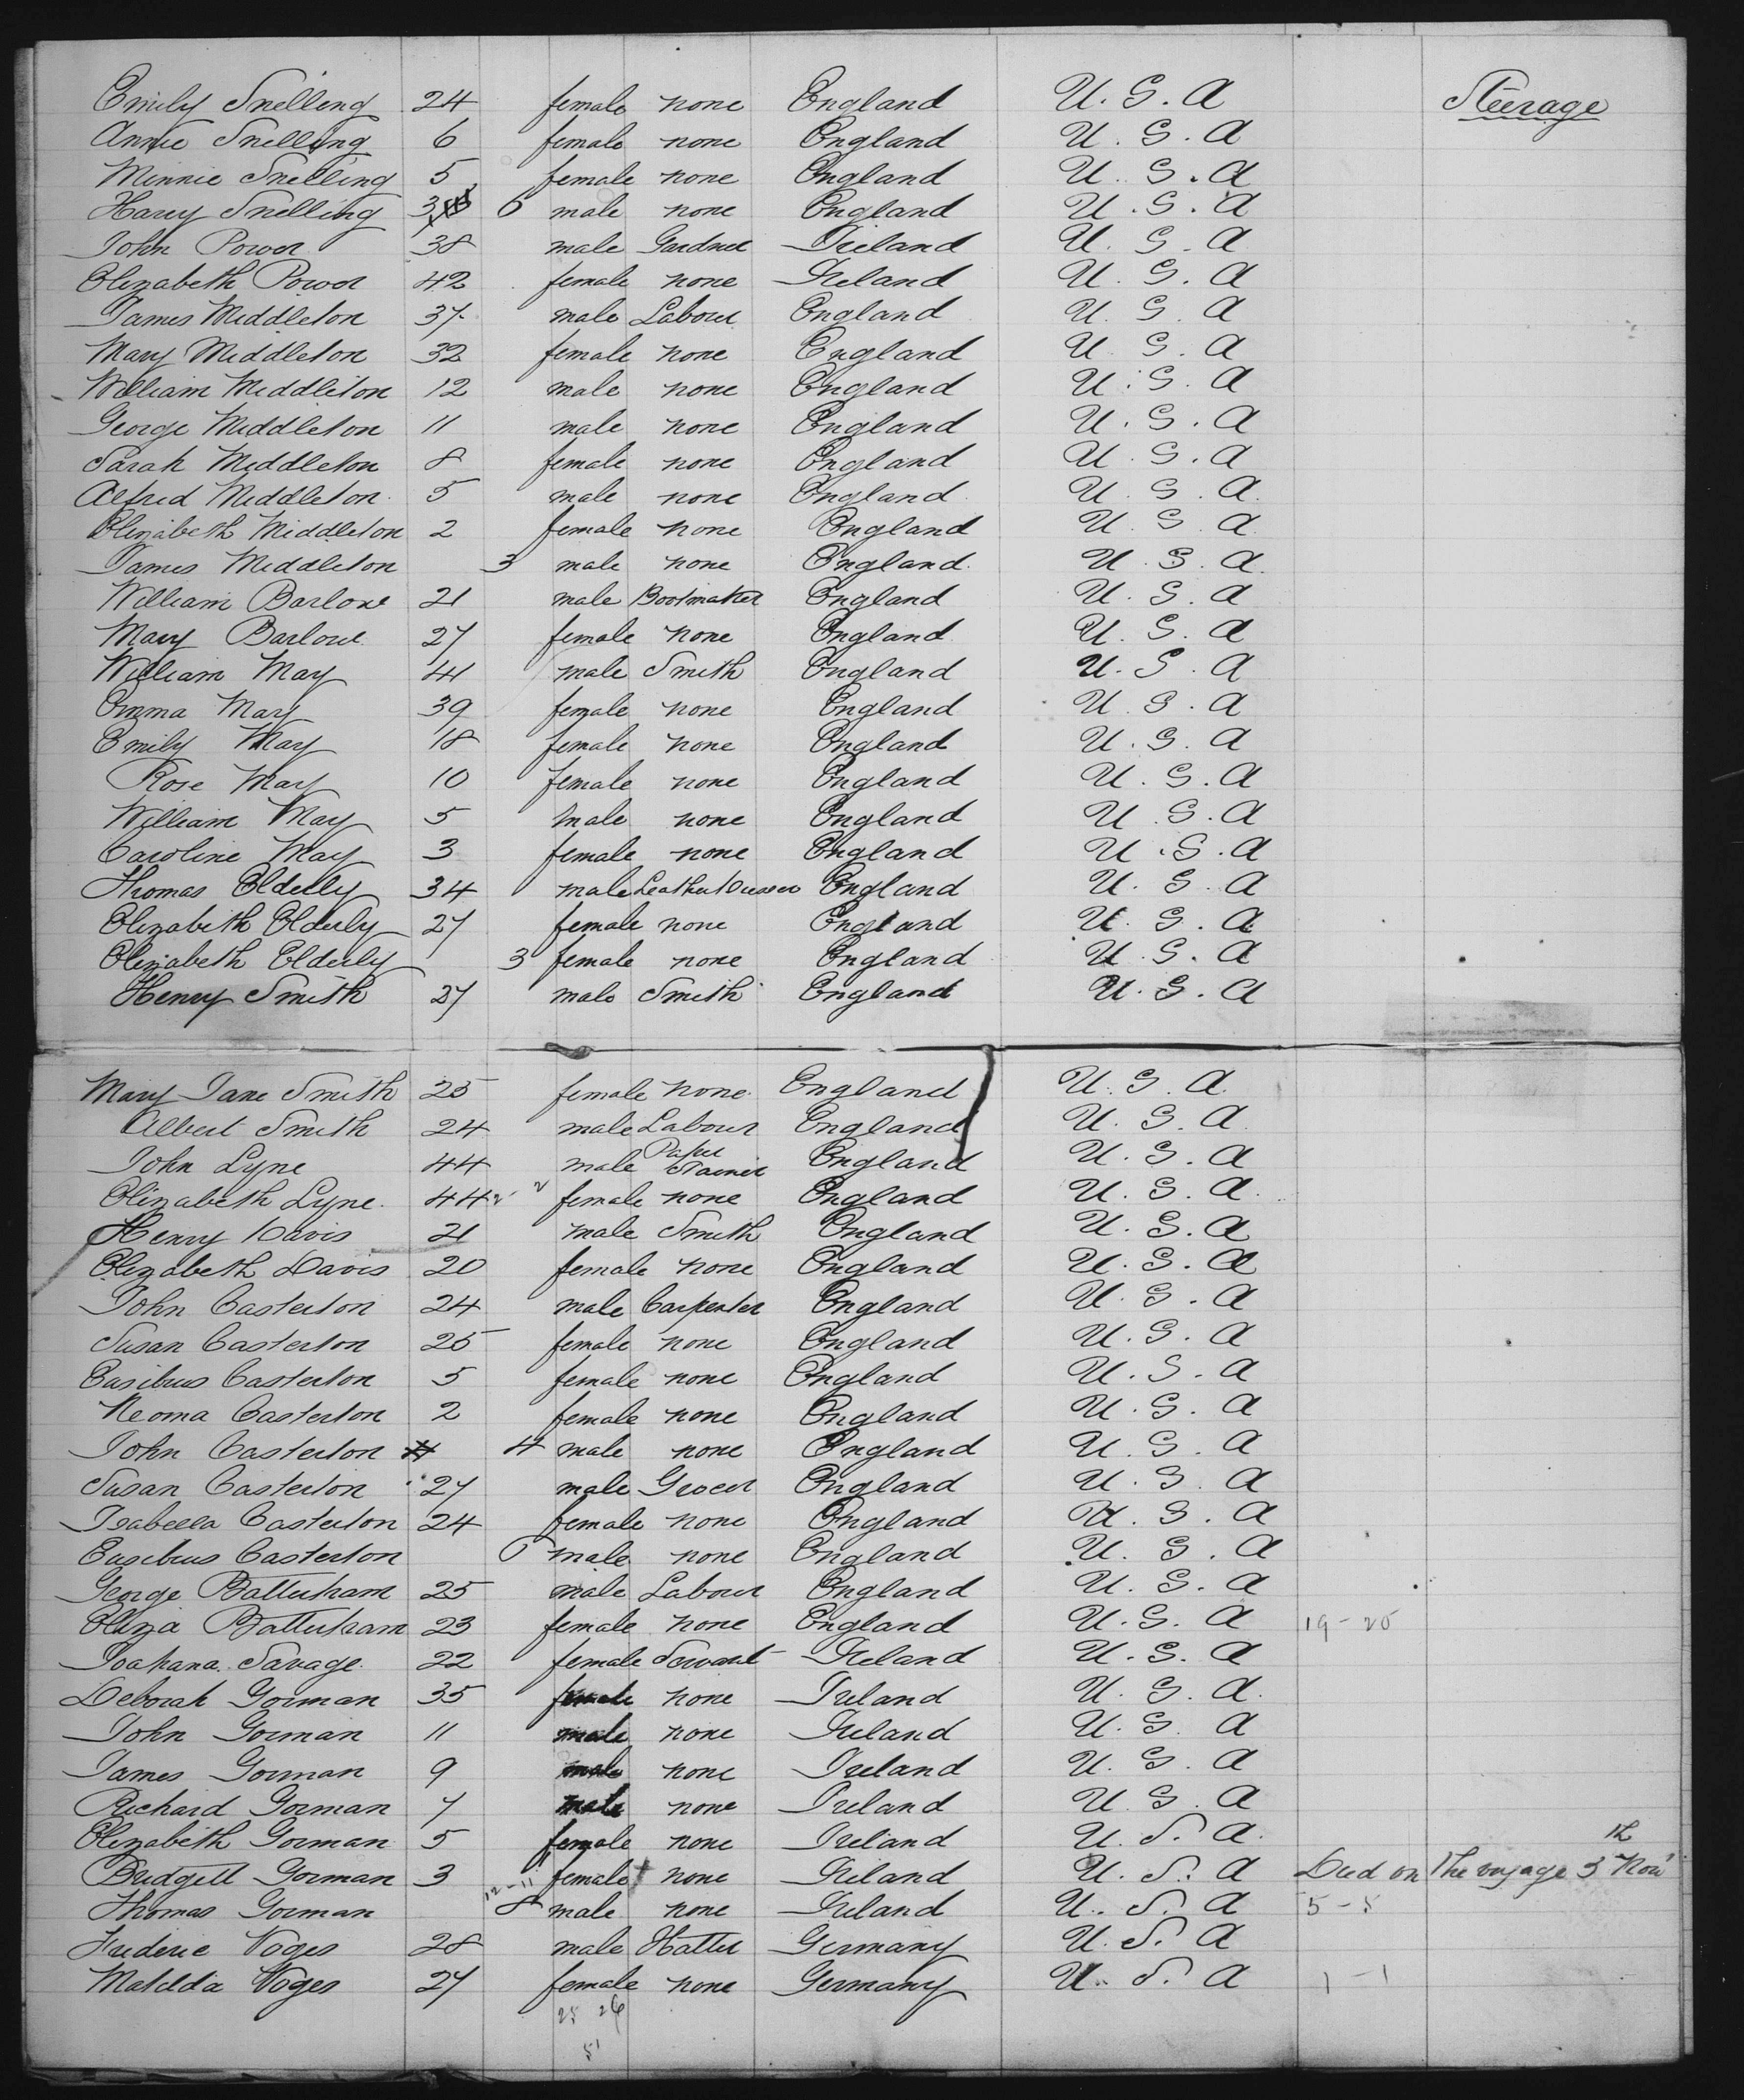 Emily Snelling 24 female none England U.S.A Steerage
Annie Snelling 6 female none England U.S.A
Minnie Snelling 5 female none England U.S.A
Harry Snelling 3 6 male none England U.S.A
John Power 38 male Gardner Ireland U.S.A
Elizabeth Power 42 female none Ireland U.S.A
James Middleton 37 male Labour England U.S.A
Mary Middleton 32 female none England U.S.A
William Middleton 12 male none England U.S.A
George Middleton 11 male none England U.S.A
Sarah Middleton 8 female none England U.S.A
Alfred Middleton 5 male none England U.S.A
Elizabeth Middleton 2 female none England U.S.A
James Middleton 3 male none England U.S.A
William Barlowe 21 male Bootmaker England U.S.A
Mary Barlowe 27 female none England U.S.A
William May 41 male Smith England U.S.A
Emma May 39 female none England U.S.A
Emily May 18 female none England U.S.A
Rose May 10 female none England U.S.A
William May 5 male none England U.S.A
Caroline May 3 female none England U.S.A
Thomas Elderly 34 male Leather Dresser England U.S.A
Elizabeth Elderly 27 female none England U.S.A
Elizabeth Elderly 3 female none England U.S.A
Henry Smith 27 male Smith England U.S.A
Mary Jane Smith 25 female none England U.S.A
Albert Smith 24 male Labour England U.S.A
John Lyne 44 male Paper Stainer England U.S.A
Elizabeth Lyne 44 female none England U.S.A
Henry Davis 21 male Smith England U.S.A
Elizabeth Davis 20 female none England U.S.A
John Casterton 24 male Carpenter England U.S.A
Susan Casterton 25 female none England U.S.A
Eusibius Casterton 5 female none England U.S.A
Neoma Casterton 2 female none England U.S.A
John Casterton 4 male none England U.S.A
Susan Casterton 27 male Grocer England U.S.A
Isabella Casterton 24 female none England U.S.A
Eusibius Casterton 6 male none England U.S.A
George Batterham 25 male Labour England U.S.A
Eliza Batterham 23 female none England U.S.A 19-25
Joahana Savage 22 female Servant Ireland U.S.A
Deborah Gorman 35 female none Ireland U.S.A
John Gorman 11 male none Ireland U.S.A
James Gorman 9 male none Ireland U.S.A
Richard Gorman 7 male none Ireland U.S.A
Elizabeth Gorman 5 female none Ireland U.S.A
Bridgett Gorman 3 female + none Ireland U.S.A Died on the voyage 3th Nov
Thomas Gorman 12-11 8 male none Ireland U.S.A 5-5
Frederic Voges 28 male Hatter Germany U.S.A
Matilda Voges 27 female none Germany U.S.A 1-1
25 26
51